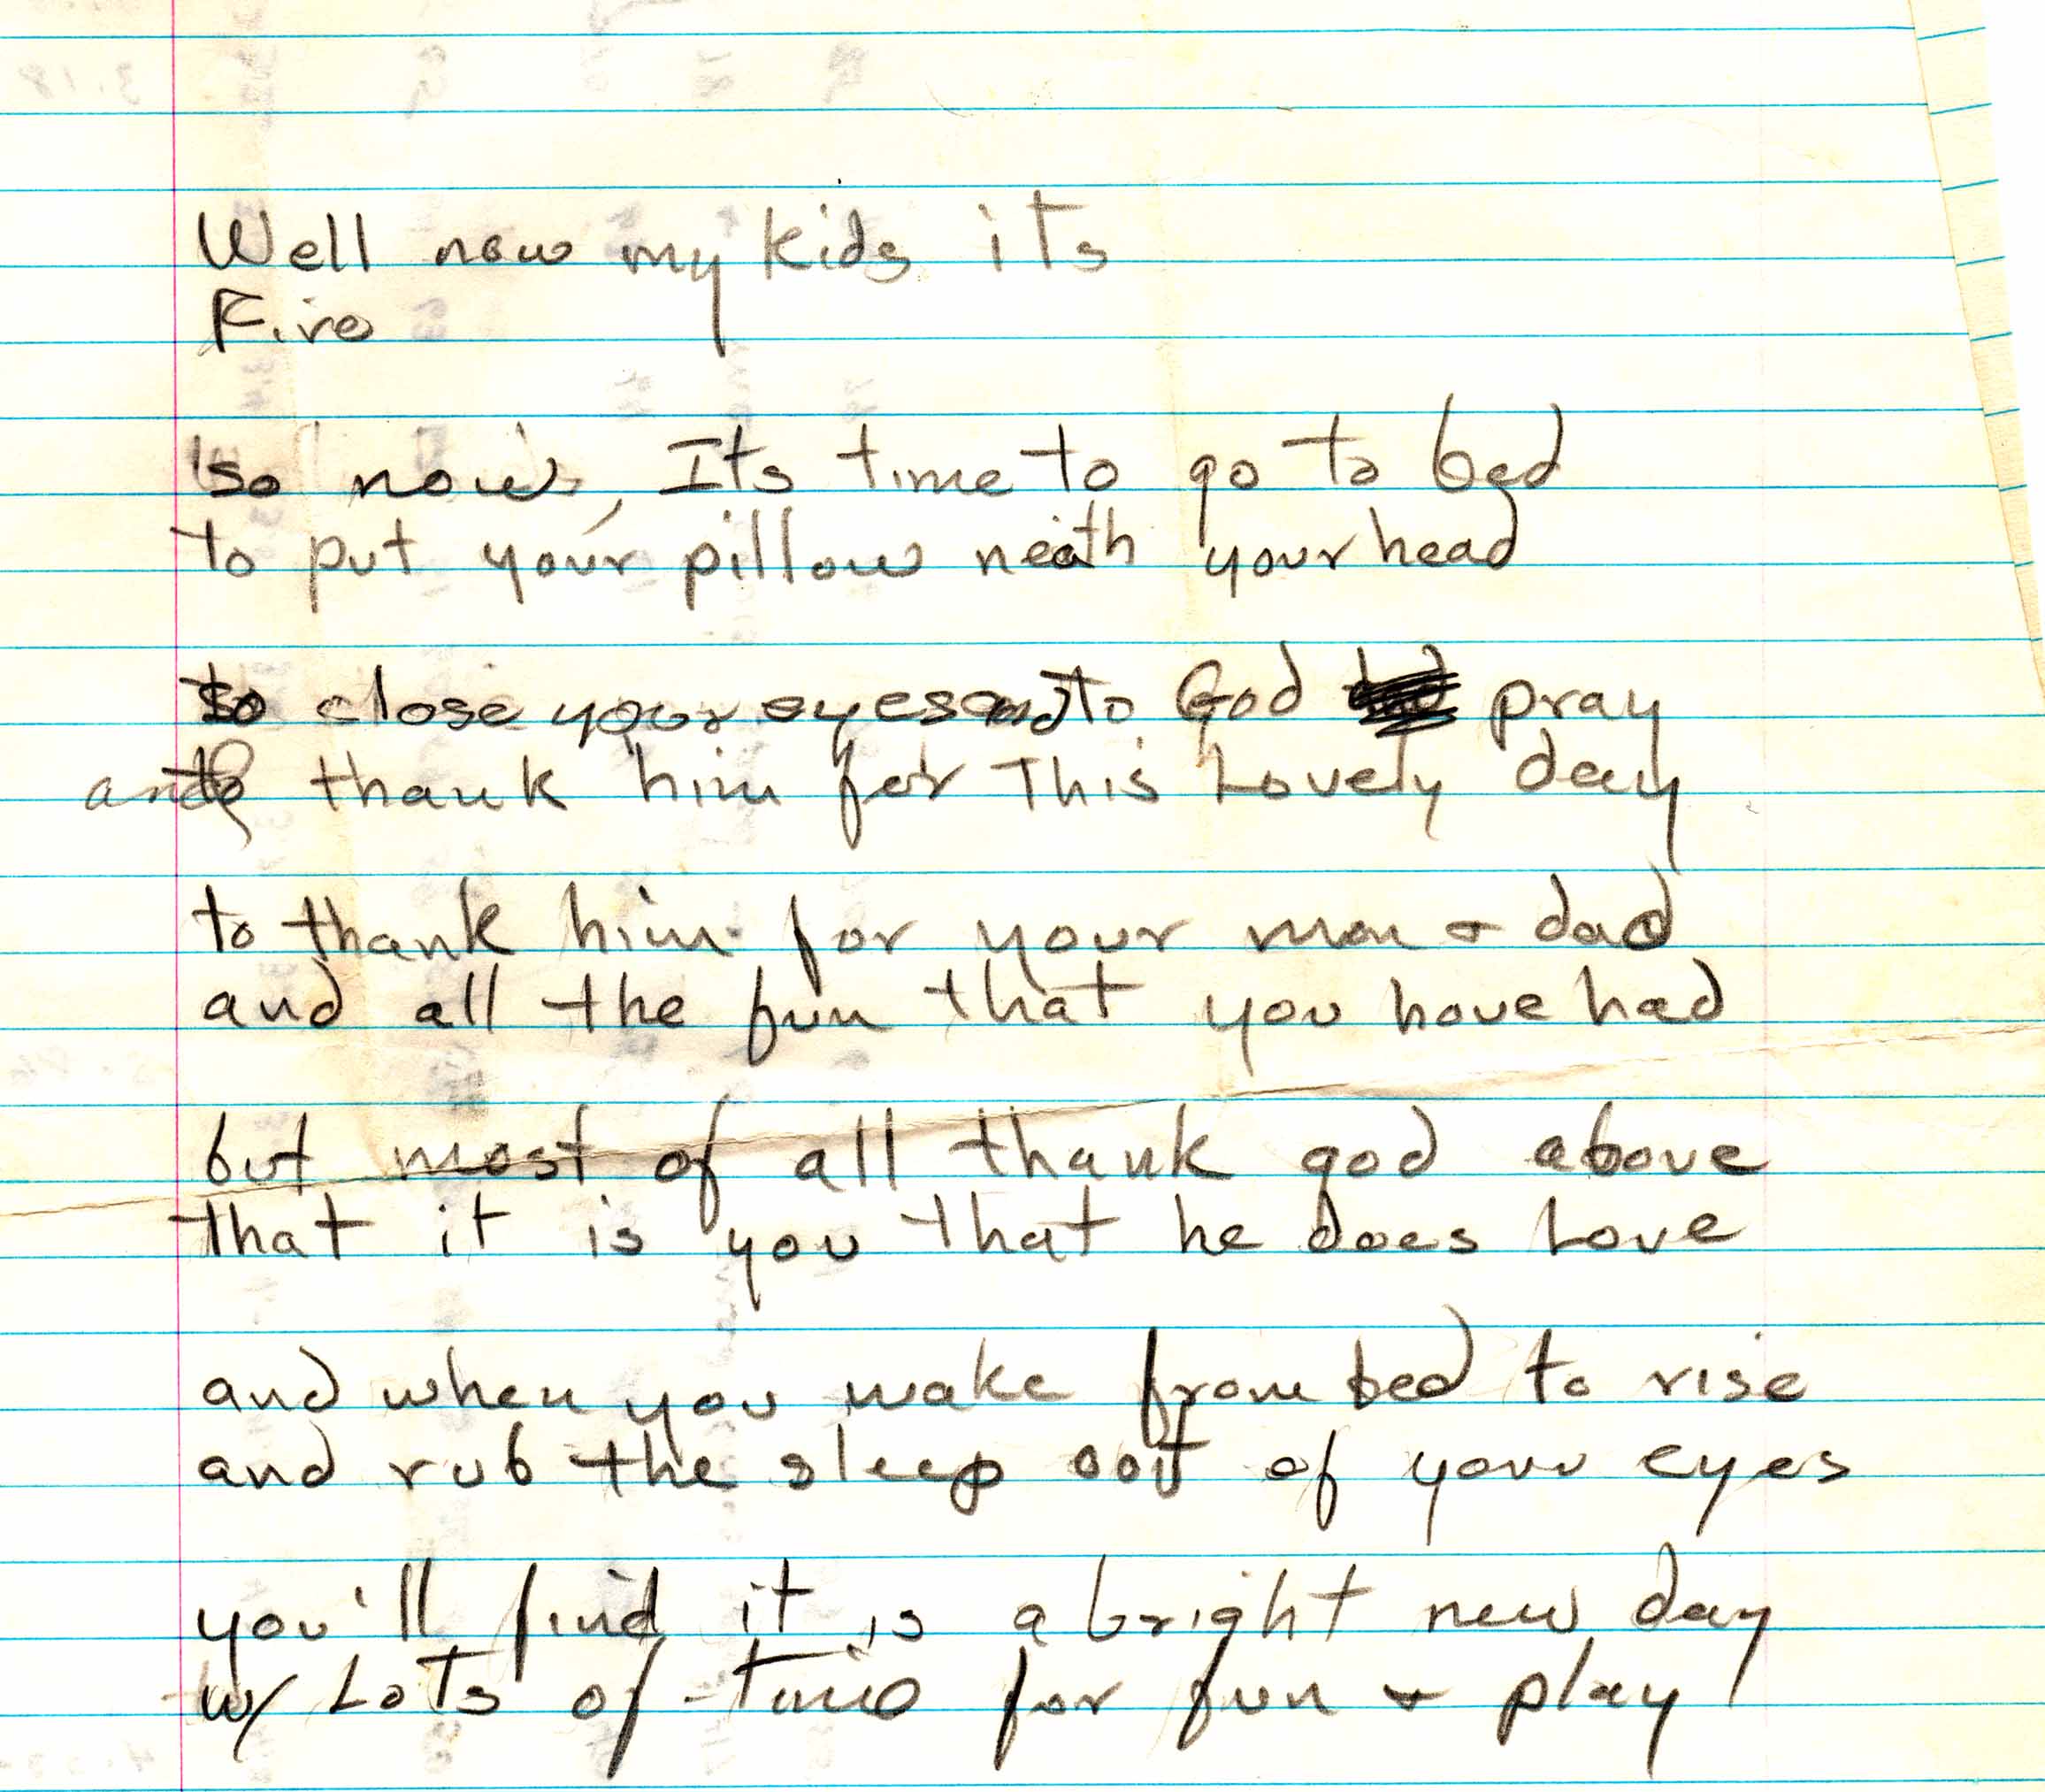 Well now my kids its
Fire
so now, Its time to go to bed
to put your pillow neath your head
to close your eyes and to God pray
and thank him for This Lovely day
to thank him for your mom + dad
and all the fun that you have had
but most of all thank god above
that it is you that he does Love
and when you wake from bed to rise
and rub the sleep out of your eyes
you'll find it is a bright new day
w/ Lots of time for fun + play